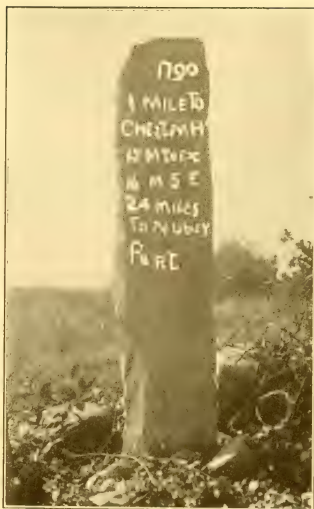 1790
1 MILE TO
CHESTR MH
15 M TO EX
16 M S E
24 MILES
TO NUBUY
PORT